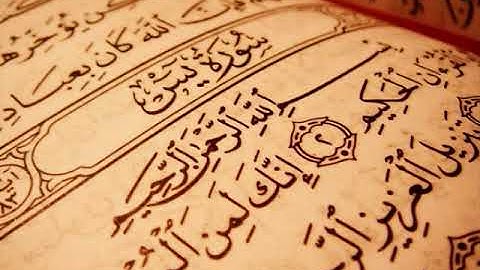 ن نؤخره
ٱللَّهَ كَانَ بِعِبَادِ
سُورَةُ يسٓ
بِسْمِ ٱللَّهِ ٱلرَّحْمَٰنِ ٱلرَّحِيمِ
ٱلْحَكِيمِ ٢ إِنَّكَ لَمِنَ ٱلْمُ
تَنزِيلَ ٱلْعَزِيزِ ٱلرَّ